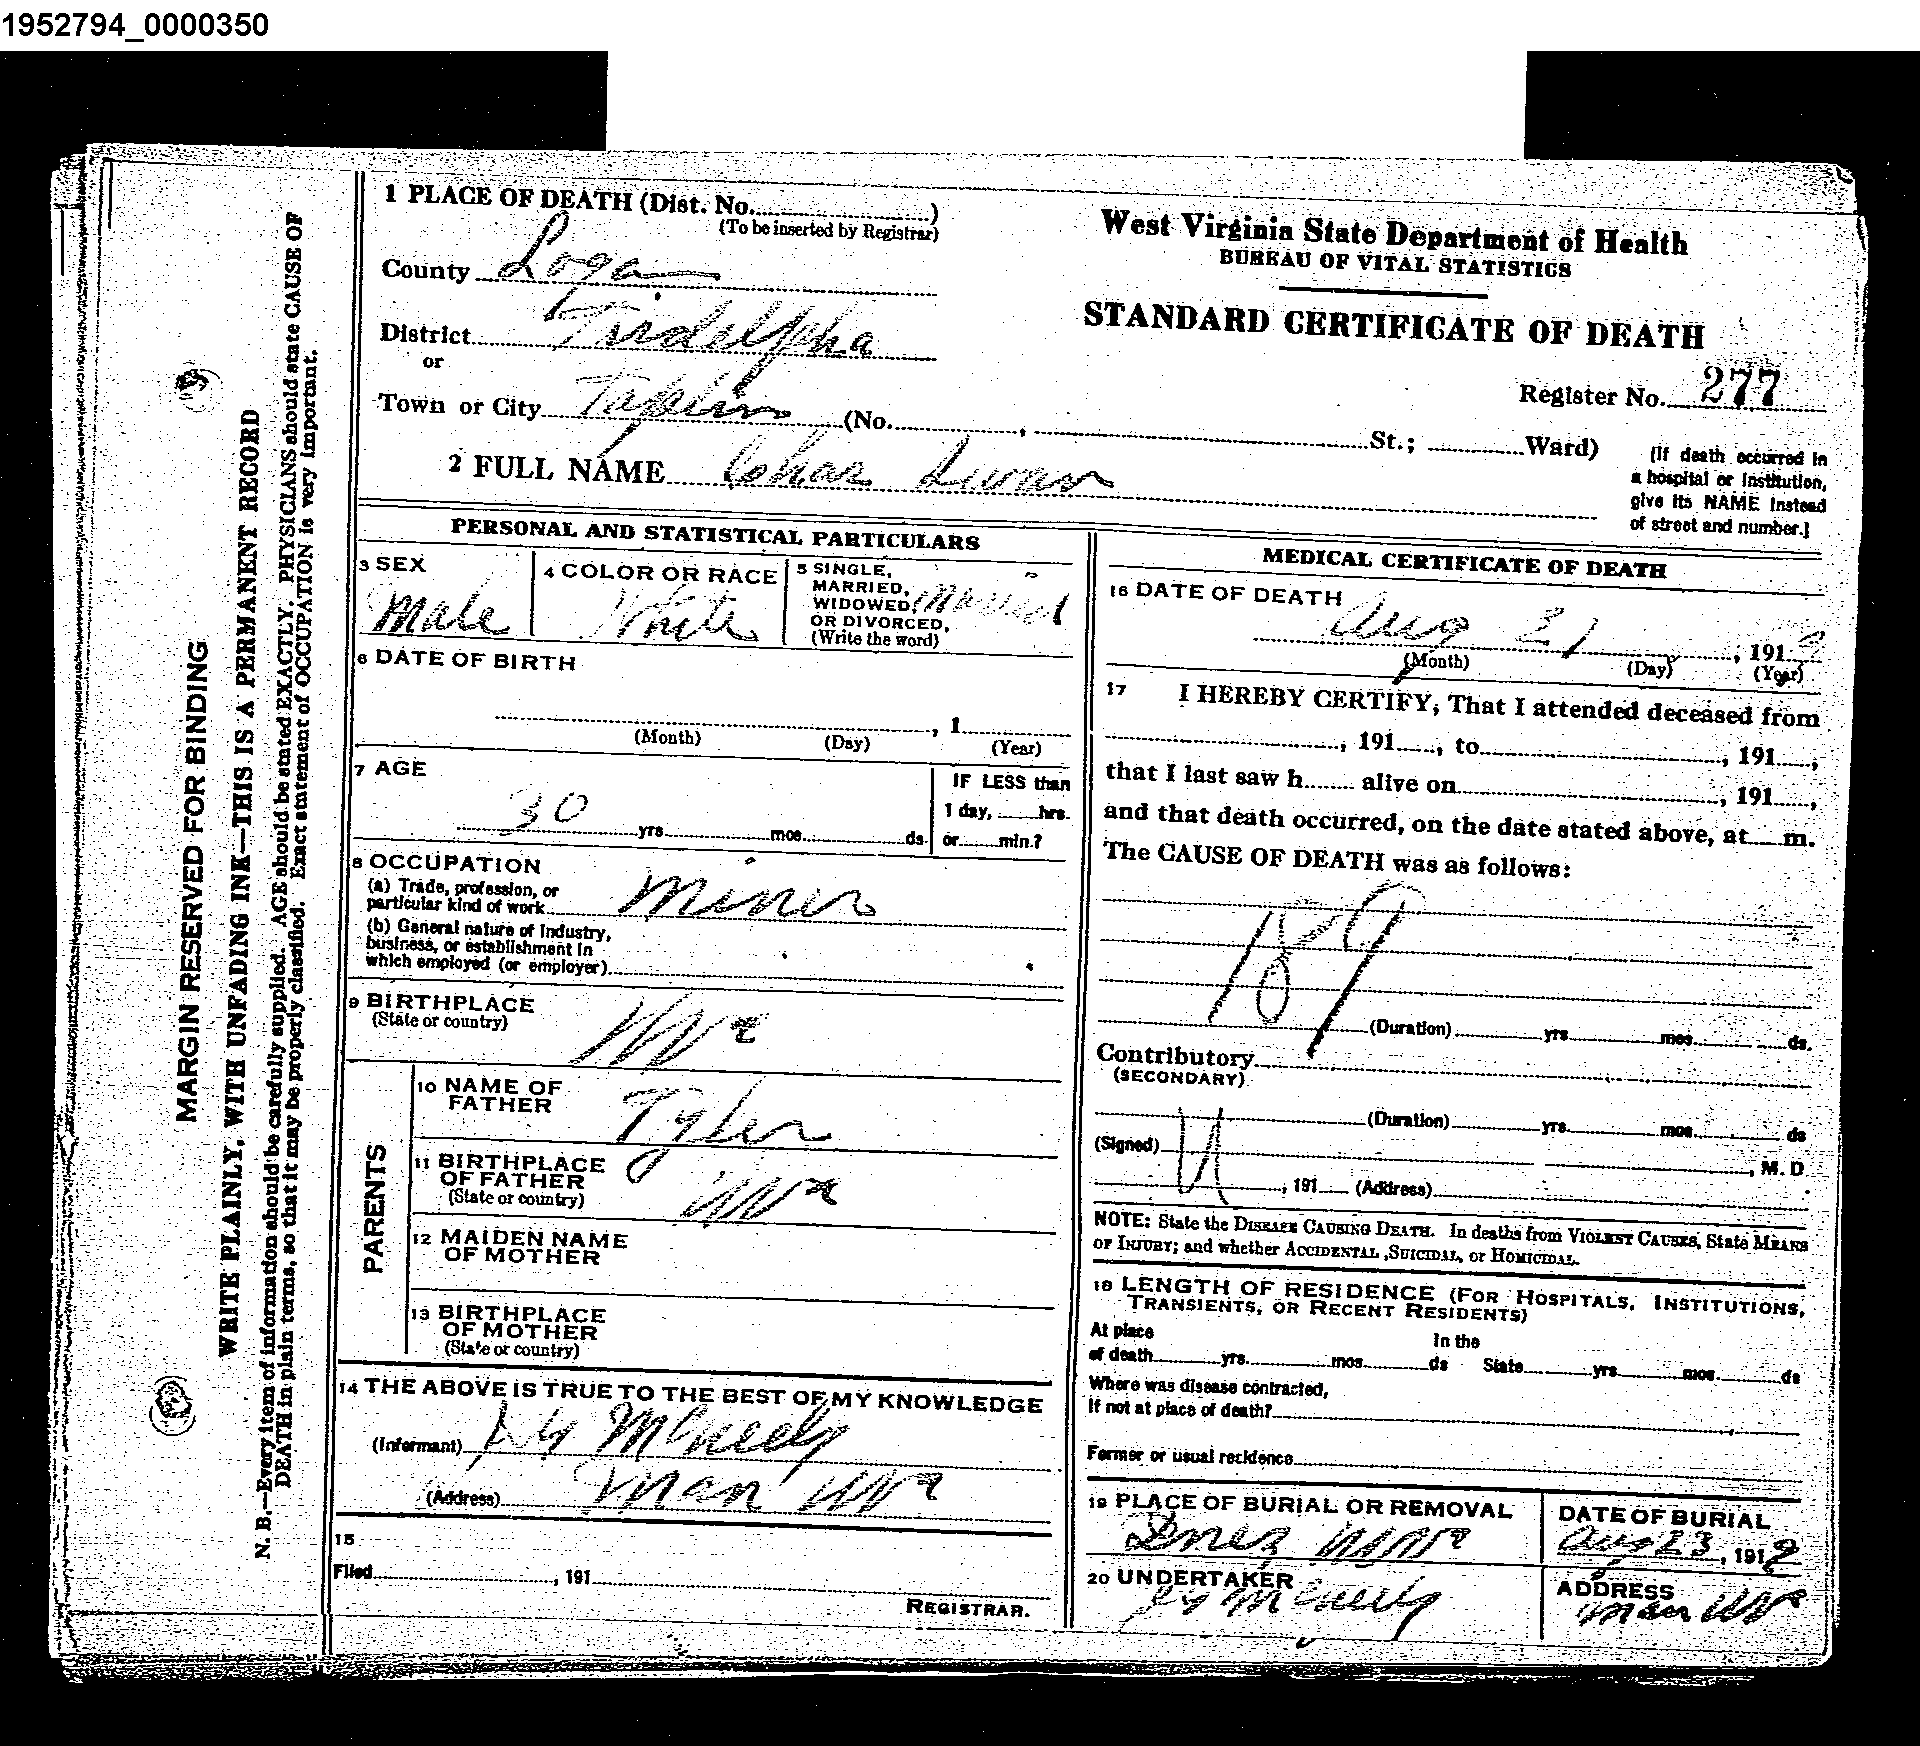 1952794_0000350
MARGIN RESERVED FOR BINDING
WRITE PLAINLY, WITH UNFADING INK—THIS IS A PERMANENT RECORD
N. B.—Every item of information should be carefully supplied. AGE should be stated EXACTLY. PHYSICIANS should state CAUSE OF
DEATH in plain terms, so that it may be properly classified. Exact statement of OCCUPATION is very important.
1 PLACE OF DEATH (Dist. No. )
(To be inserted by Registrar)
County Logan
District Tridelpha
or
Town or City Taplin (No. , St.; Ward)
West Virginia State Department of Health
BUREAU OF VITAL STATISTICS
STANDARD CERTIFICATE OF DEATH
Register No. 277
(If death occurred in
a hospital or institution,
give its NAME instead
of street and number.]
2 FULL NAME Chas
PERSONAL AND STATISTICAL PARTICULARS
3 SEX
Male
4 COLOR OR RACE
White
5 SINGLE,
MARRIED,
WIDOWED,
OR DIVORCED,
(Write the word)
Married
6 DATE OF BIRTH
, 1
(Month) (Day) (Year)
7 AGE
30 yrs. mos. ds.
IF LESS than
1 day, hrs.
or min.?
8 OCCUPATION
(a) Trade, profession, or
particular kind of work Miner
(b) General nature of industry,
business, or establishment in
which employed (or employer)
9 BIRTHPLACE
(State or country)
W Va
PARENTS
10 NAME OF
FATHER
Tyler
11 BIRTHPLACE
OF FATHER
(State or country)
W Va
12 MAIDEN NAME
OF MOTHER
13 BIRTHPLACE
OF MOTHER
(State or country)
14 THE ABOVE IS TRUE TO THE BEST OF MY KNOWLEDGE
(Informant) McNeely
(Address) Man W Va
15
Filed , 191
REGISTRAR.
MEDICAL CERTIFICATE OF DEATH
16 DATE OF DEATH
Aug 21 , 191
(Month) (Day) (Year)
17 I HEREBY CERTIFY, That I attended deceased from
, 191 , to , 191 ,
that I last saw h alive on , 191 ,
and that death occurred, on the date stated above, at m.
The CAUSE OF DEATH was as follows:
189
(Duration) yrs. mos. ds.
Contributory
(SECONDARY)
(Duration) yrs. mos. ds
(Signed) , M. D
, 191 (Address)
NOTE: State the DISEASE CAUSING DEATH. In deaths from VIOLENT CAUSES, State MEANS
OF INJURY; and whether ACCIDENTAL ,SUICIDAL, or HOMICIDAL.
18 LENGTH OF RESIDENCE (FOR HOSPITALS, INSTITUTIONS,
TRANSIENTS, OR RECENT RESIDENTS)
At place In the
of death yrs. mos. ds State yrs. mos. ds
Where was disease contracted,
If not at place of death?
Former or usual residence
19 PLACE OF BURIAL OR REMOVAL
W Va
DATE OF BURIAL
Aug 23, 191
20 UNDERTAKER
McNeely
ADDRESS
Man W Va